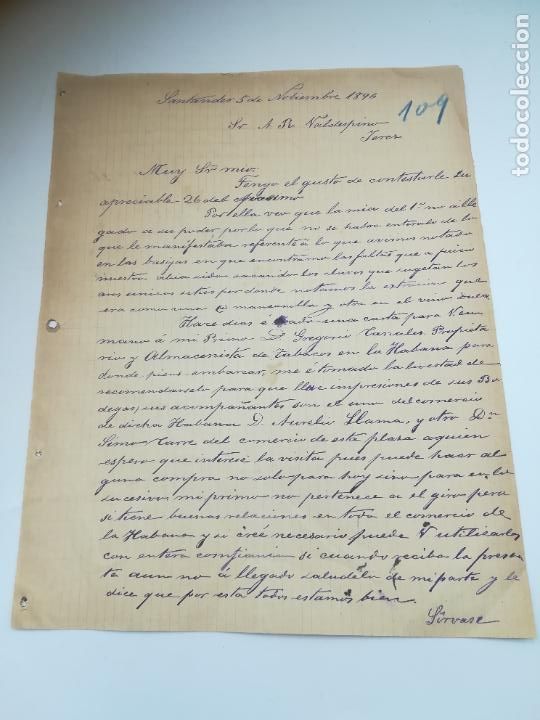 Santander 5 de Nobiembre 1896
109
Sr A. R. Valdespino
Jerez
Muy Sr mio:
Tengo el gusto de contestarle su
apreciable 26 del
Por ella veo que la mia del 1º no a lle
gado a su poder por lo que no se habra enterado de lo
que le manifestaba referente á lo que avemos notado
en las basijas en que encontramos las faltas que a juicio
nuestro sacando los claros que sugetan los
aros unicos sitios por donde notamos la que
era como una manzanilla y otra en el vino
Hace dias é dado una carta para V en
mano á mi Primo D. Gregorio Canales Propieta
rio y Almacenista de Tabacos en la Habana para
donde piensa embarcar, me é tomado la livertad de
recomendarselo para que lleve impresiones de sus Bo
degas; sus acompañantes son el uno del comercio
de dicha Habana D. Aurelio Llama, y otro Dn
Simon Carre del comercio de esta plaza a quien
espero que interese la visita pues puede haser al
guna compra no solo para hoy sino para en lo
sucesivo; mi primo no pertenece a el giro pero
si tiene buenas relaciones en todo el comercio de
la Habana y si creé necesario puede V utilizarlos
con entera confianza si cuando reciba la presen
te aun no á llegado saludelo de mi parte y le
dice que por esta todos estamos bien.
Sirvase
todocoleccion